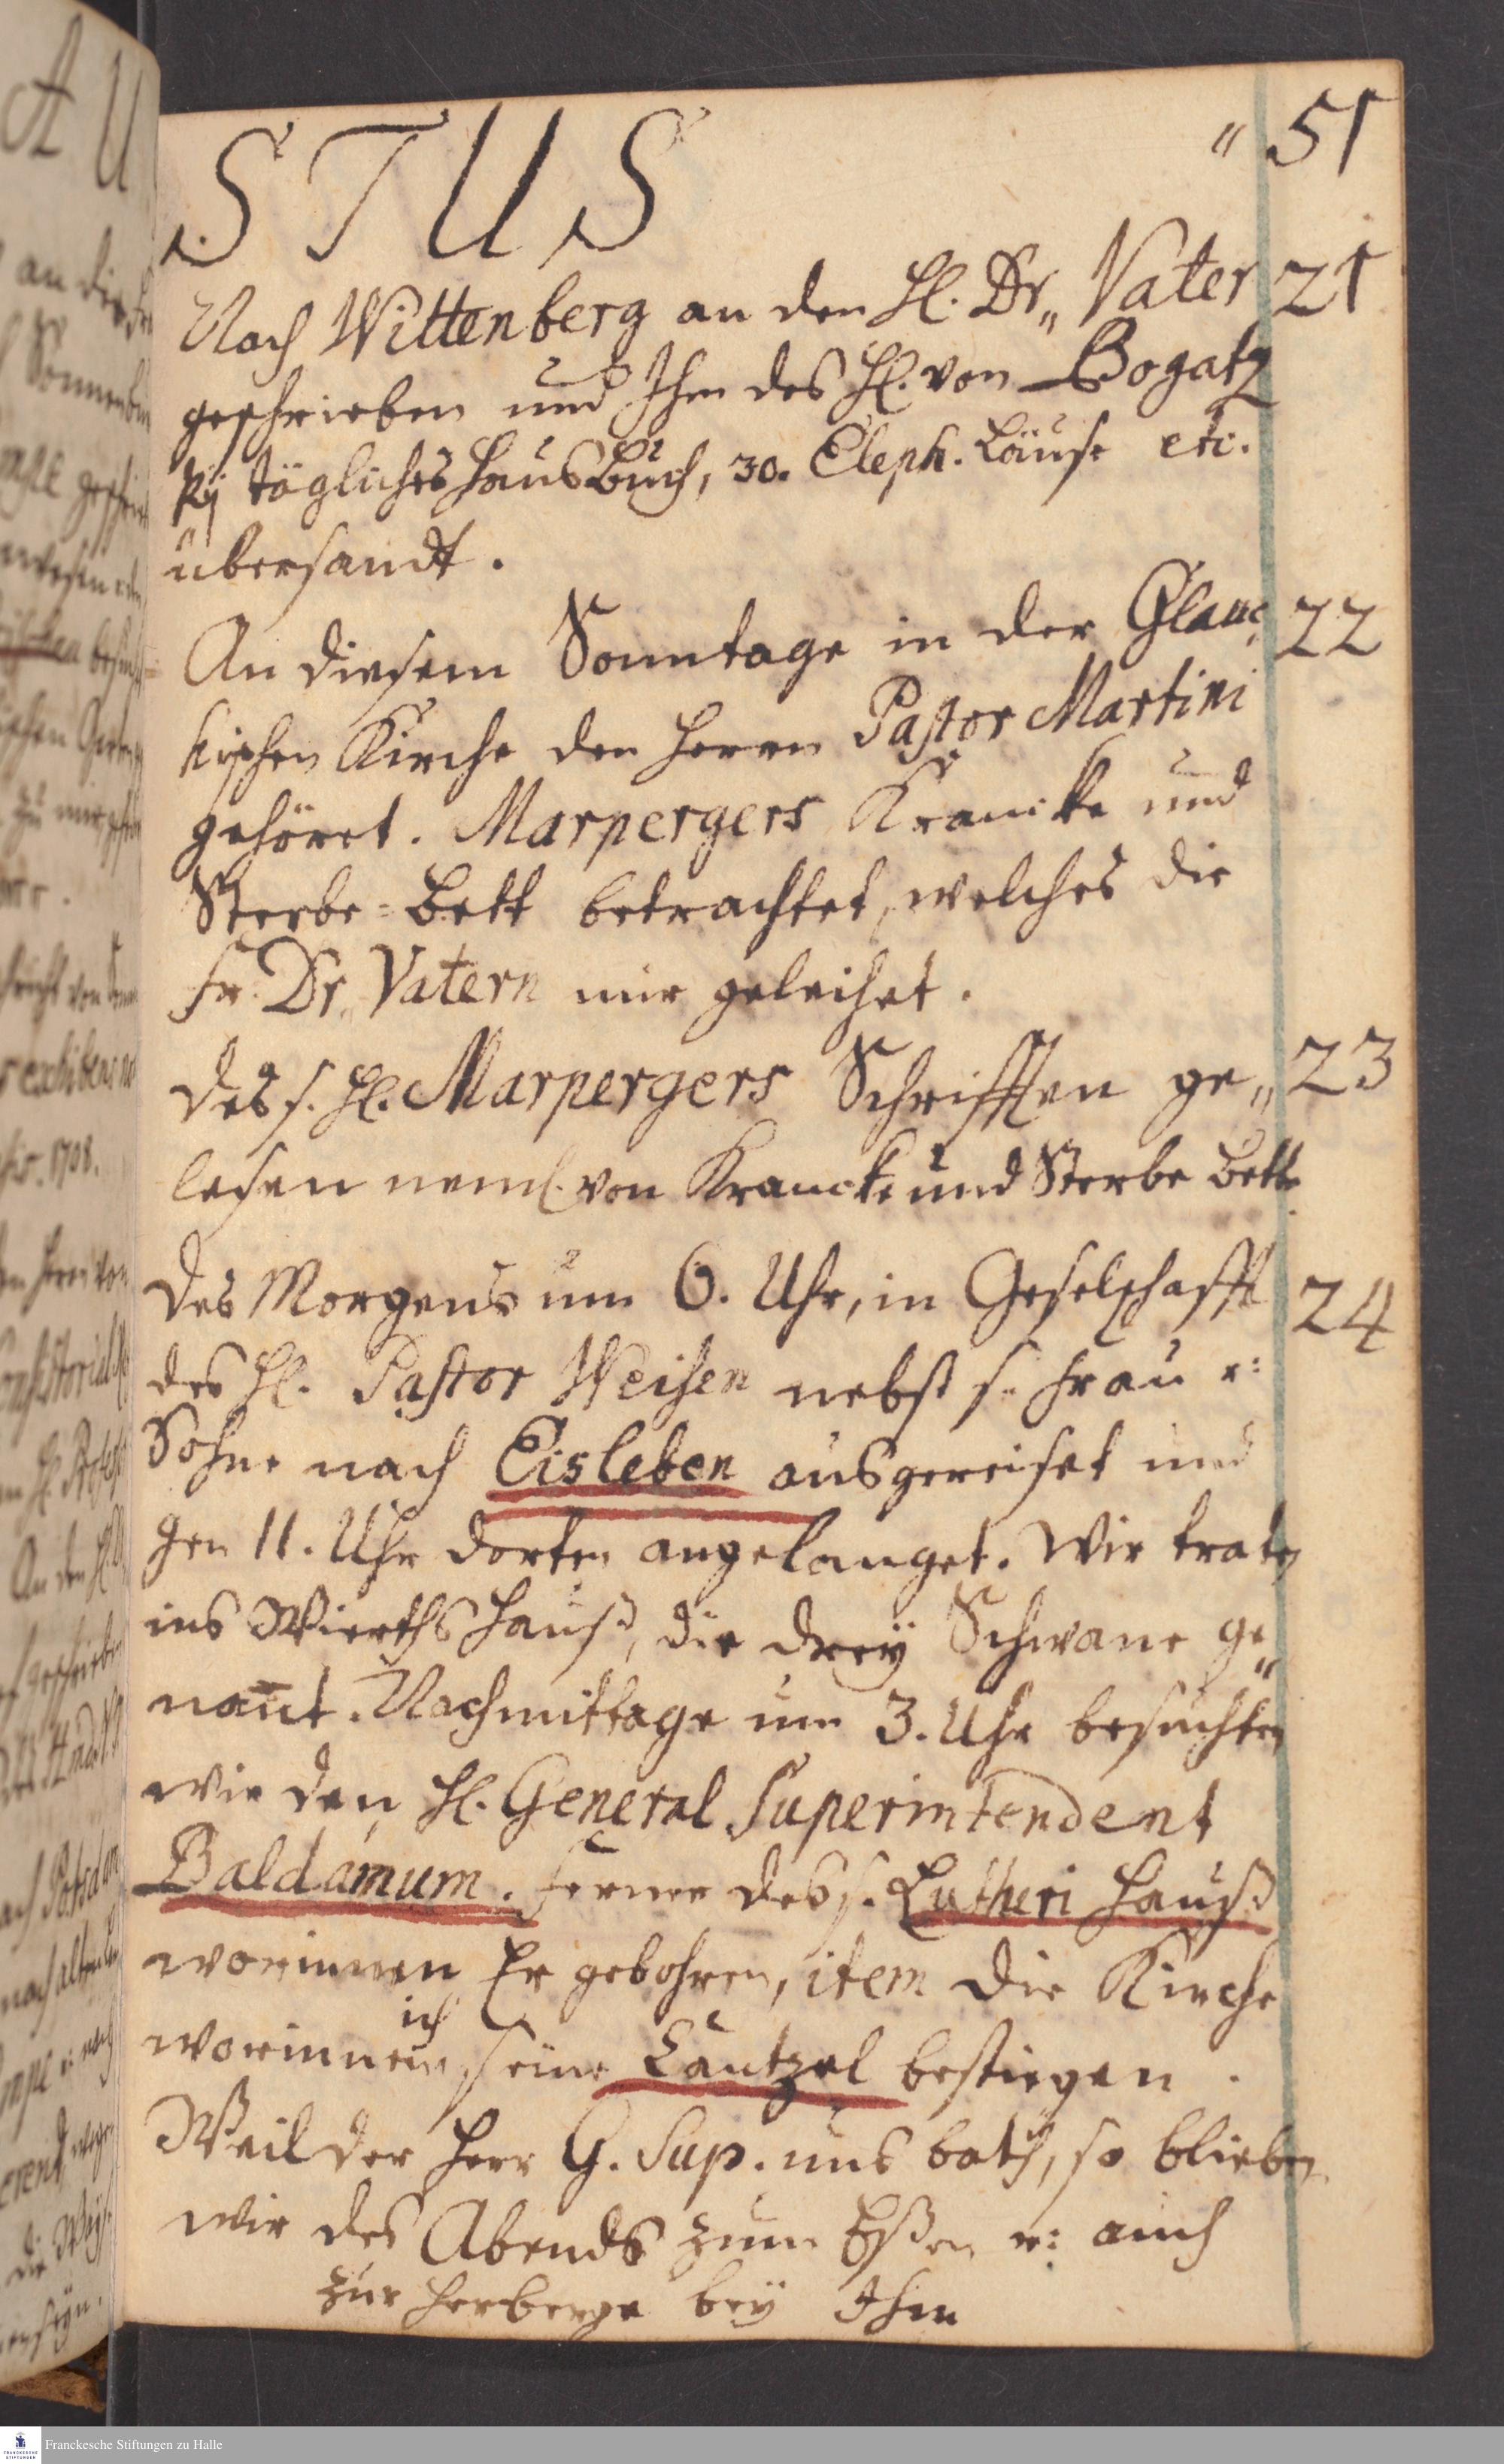 STUS „ 51
Nach Wittenberg an den H. Dr„ Vater 21
geschrieben und Ihm des H. von Bogatz
ky tägliches Hausbuch, 30. Eleph. Läuse etc.
übersandt.
An diesem Sonntage in der Glauc„ 22
kischen Kirche den Herrn Pastor Martini
gehöret. Marpergers Krancke und
Sterbe=Bett betrachtet, welches die
Fr. Dr. Vatern mir geleihet.
des s. H. Marpergers Schrifften ge„ 23
lesen neml. von Krancke und Sterbe Bett
des Morgens um 6. Uhr, in Geselschafft 24
des H. Pastor Weisen nebst s. Frau u:
Sohne nach Eisleben ausgereiset und
gen 11. Uhr dorten angelanget. Wir traten
ins Wierthshauß, die drey Schwane ge„
nant. Nachmittage um 3. Uhr besuchten
wir den H. General Superintendent
Baldamum. Ferner des s. Lutheri Hauß
worinnen Er gebohren, item die Kirche
ich
worinnen seine Cantzel bestiegen.
Weil der Herr G. Sup. uns bath, so blieben
wir des Abends zum Eßen u: auch
zur Herberge bey Ihm
Franckesche Stiftungen zu Halle